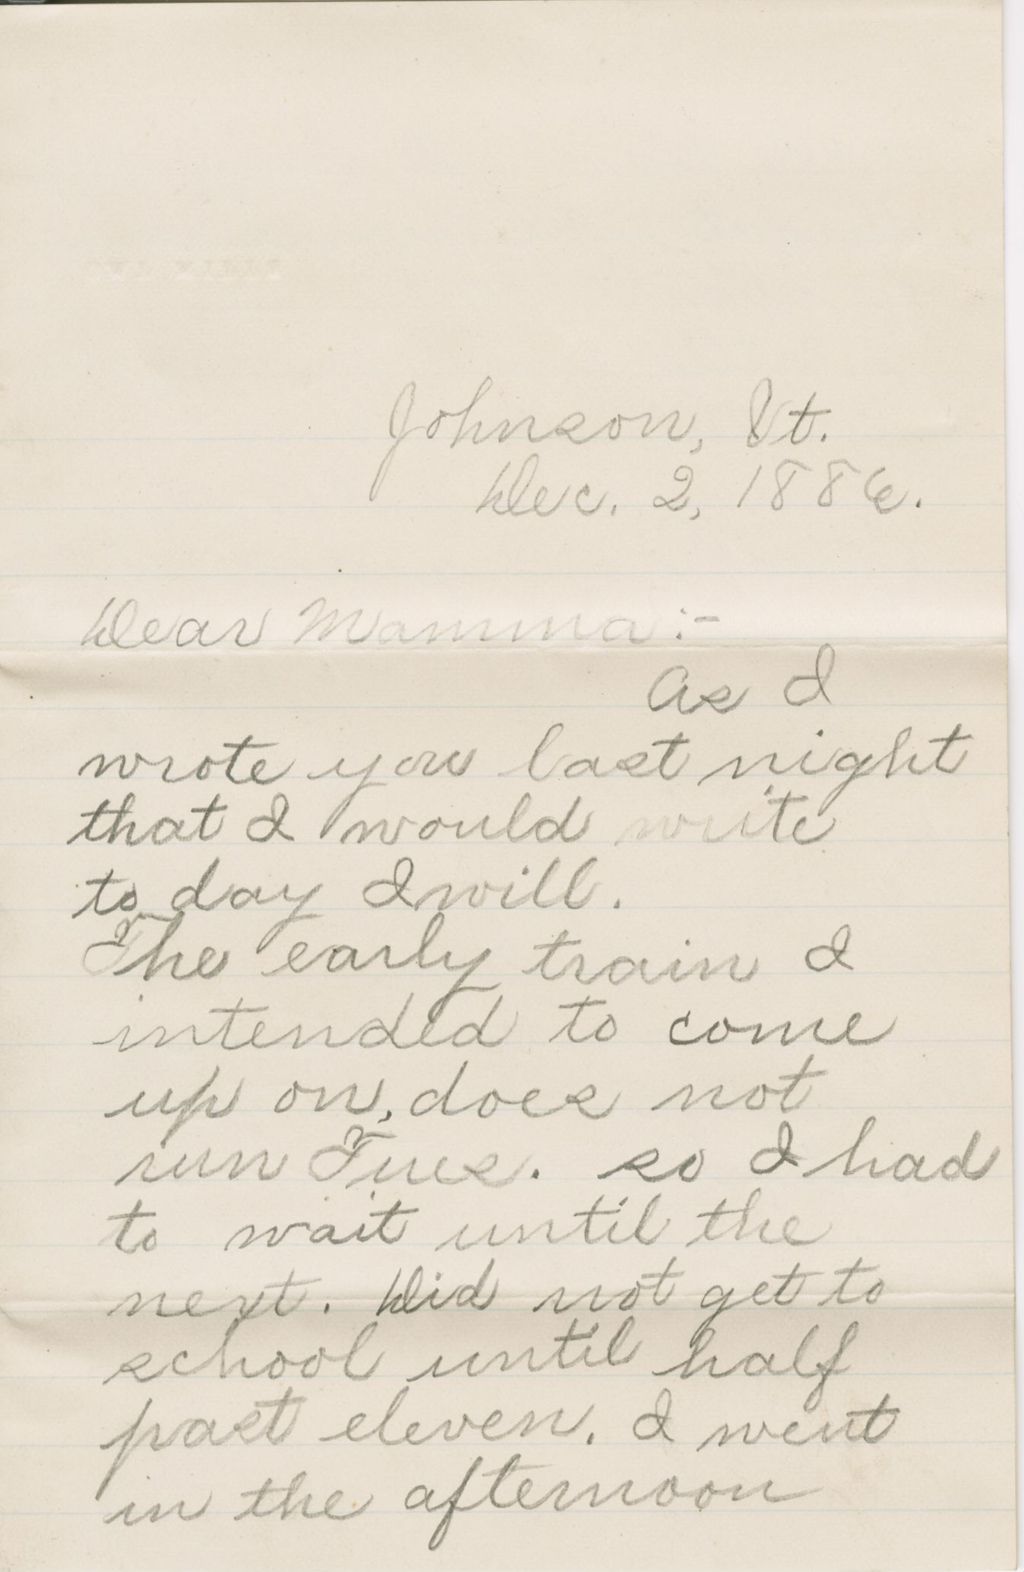 Johnson, Vt.
Dec. 2, 1886.
Dear Mamma:-
As I
wrote you last night
that I would write
to day I will.
The early train I
intended to come
up on, does not
run Tues. so I had
to wait until the
next. Did not get to
school until half
past eleven. I went
in the afternoon